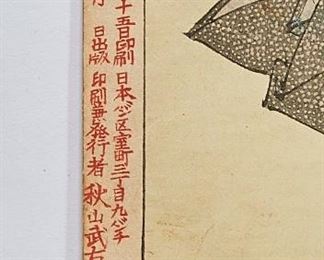 十五日印刷 日本バシ区室町三丁目九バチ
月 日出版 印刷兼発行者 秋山武右